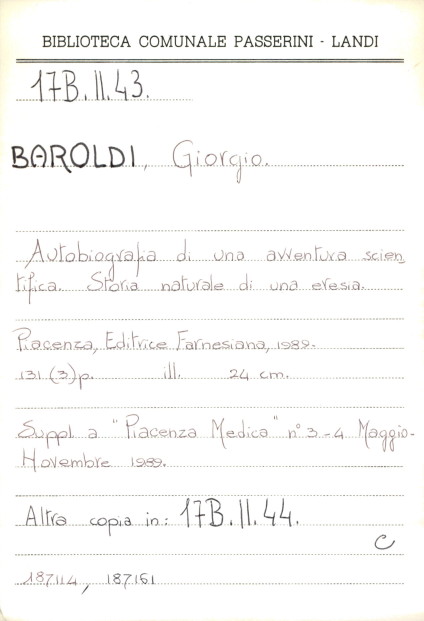 BIBLIOTECA COMUNALE PASSERINI - LANDI
17B.II.43.
BAROLDI, Giorgio.
Autobiografia di una avventura scien
tifica. Storia naturale di una eresia.
Piacenza, Editrice Farnesiana, 1989.
131 (3) p. ill. 24 cm.
Suppl. a "Piacenza Medica" n° 3-4 Maggio-
Novembre 1989.
Altra copia in: 17B.II.44.
C
187114, 187161